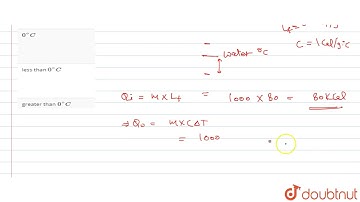 0°C
less than 0°C
greater than 0°C
C = 1 Cal/g°C
Water 0°C
Qi = m×Lf = 1000 × 80 = 80 KCal
⇒ Q₀ = m×CΔT
= 1000
doubtnut